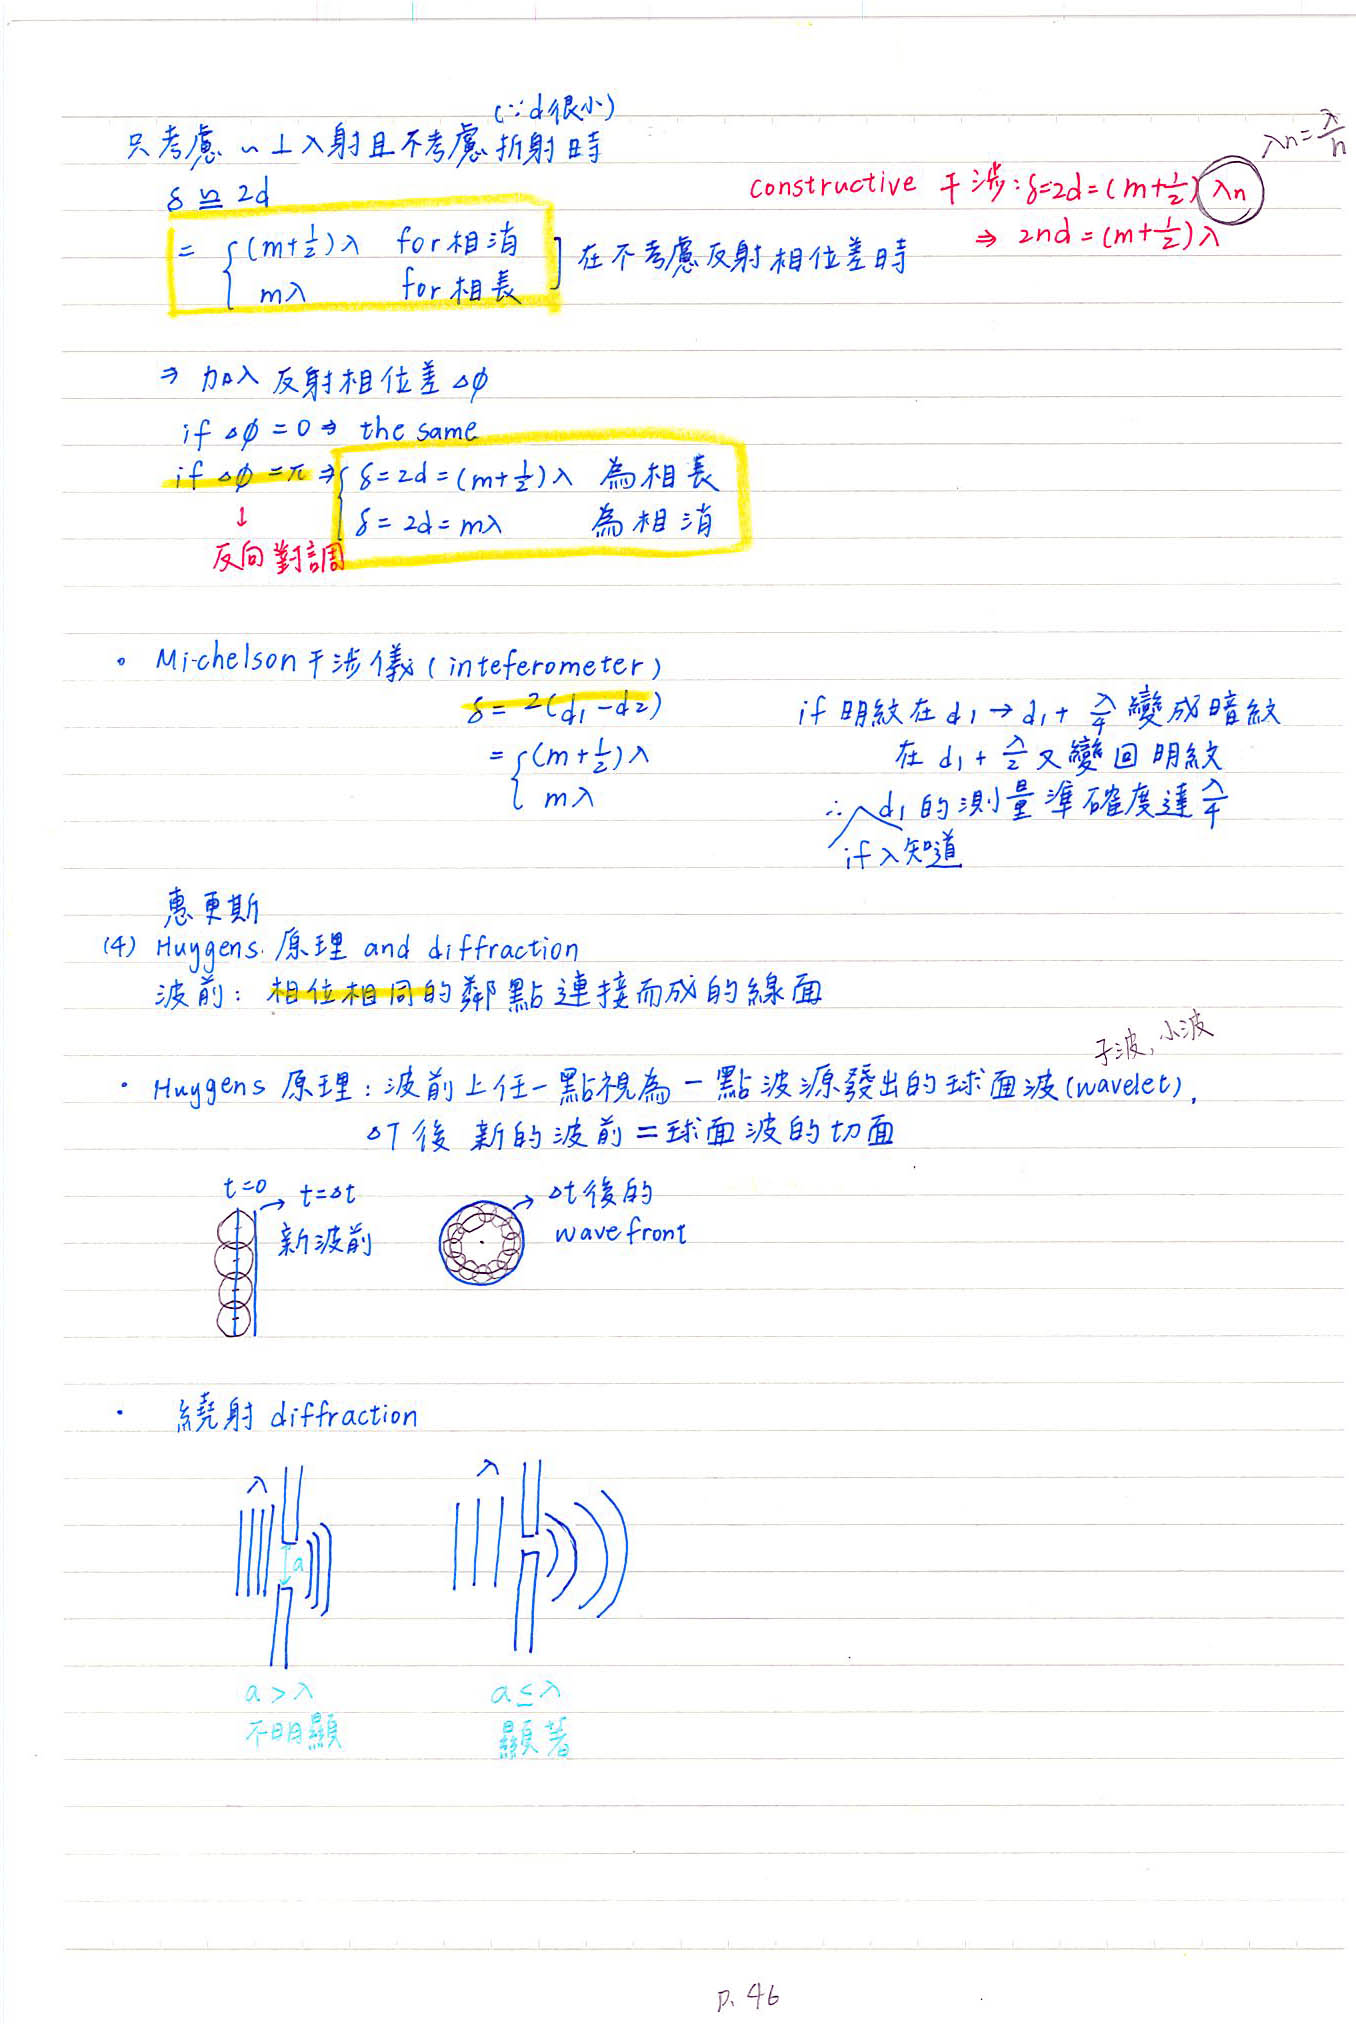 (∵d很小)
只考慮~⊥入射且不考慮折射時
δ ≌ 2d
= { (m+1/2)λ for 相消
mλ for 相長 ] 在不考慮反射相位差時
λn = λ/n
constructive 干涉: δ=2d=(m+1/2) λn
⇒ 2nd=(m+1/2)λ
⇒ 加入反射相位差 Δφ
if Δφ = 0 ⇒ the same
if Δφ = π ⇒ { δ=2d=(m+1/2)λ 為相長
δ= 2d=mλ 為相消
↓
反向對調
。 Michelson干涉儀(inteferometer)
δ= 2(d1-d2)
= { (m+1/2)λ
mλ
if 明紋在 d1 → d1 + λ/4 變成暗紋
在 d1 + λ/2 又變回明紋
∴ d1 的測量準確度達 λ/4
if λ知道
惠更斯
(4) Huygens. 原理 and diffraction
波前: 相位相同的鄰點連接而成的線面
子波, 小波
· Huygens 原理: 波前上任一點視為一點波源發出的球面波(wavelet),
ΔT後 新的波前=球面波的切面
t=0 → t=Δt
新波前
→ Δt後的
wavefront
· 繞射 diffraction
λ
a
λ
a > λ
不明顯
a ≤ λ
顯著
P. 46